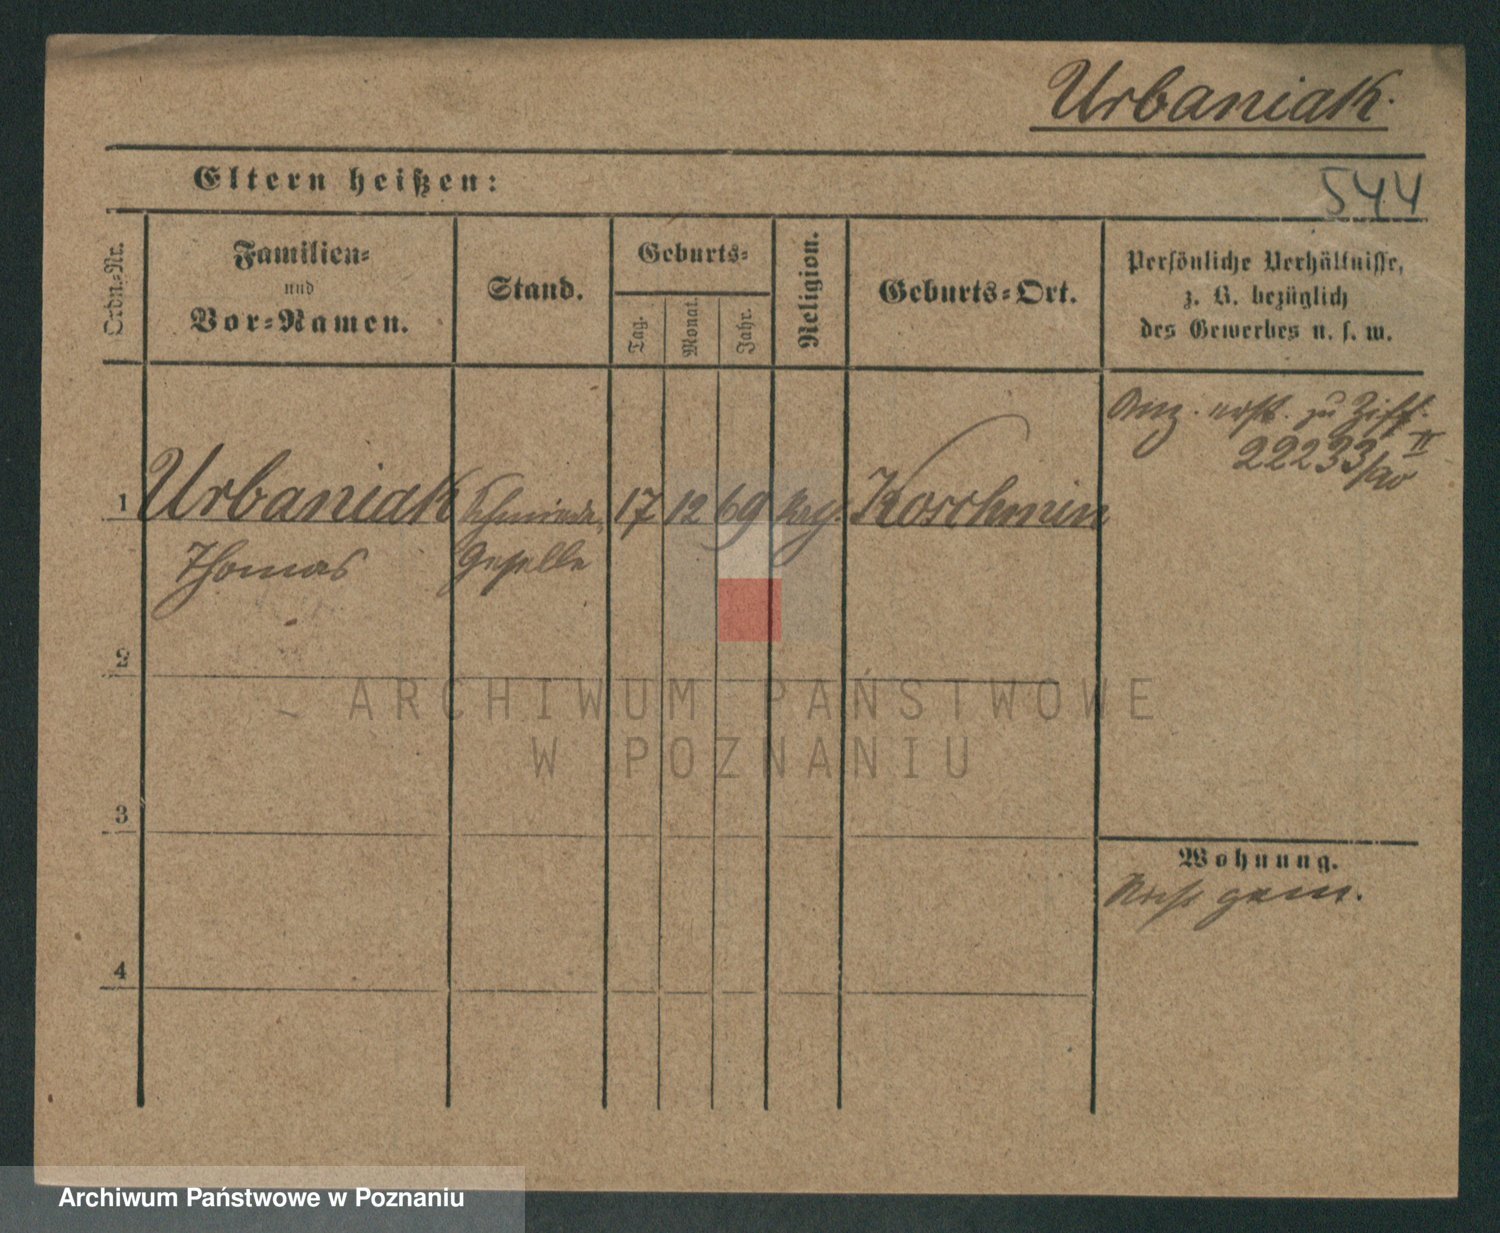 Urbaniak.
Eltern heißen:
544
Ordn.-Nr.
Familien-
und
Vor-Namen.
Stand.
Geburts-
Tag.
Monat.
Jahr.
Religion.
Geburts-Ort.
Persönliche Verhältnisse,
z. B. bezüglich
des Gewerbes u. s. w.
zu Ziff.
22233/90 II
1 Urbaniak Schmiede- 17 12 69 Koschmin
Thomas Geselle
2
3
4
Wohnung.
gem.
ARCHIWUM PAŃSTWOWE
W POZNANIU
Archiwum Państwowe w Poznaniu